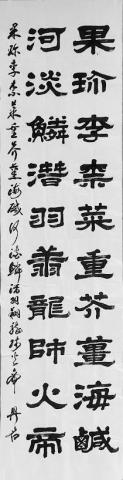 果珍李柰菜重芥薑海鹹
河淡鱗潛羽翔龍師火帝
果珍李柰菜重芥薑海鹹河淡鱗潛羽翔龍師火帝